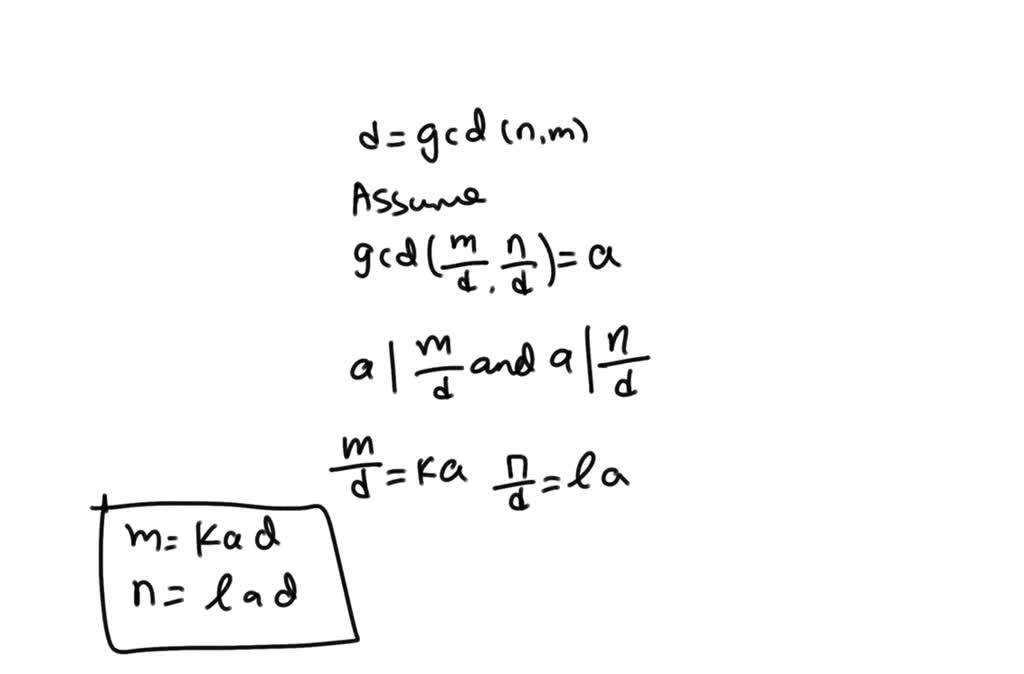 d = gcd (n,m)
Assume
gcd (m/d, n/d) = a
a | m/d and a | n/d
m/d = Ka n/d = la
m = Kad
n = lad